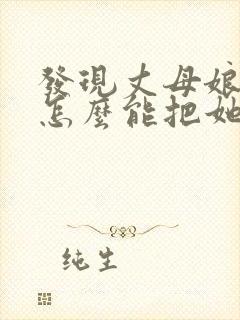 發現丈母娘
怎麼能把她
纯生